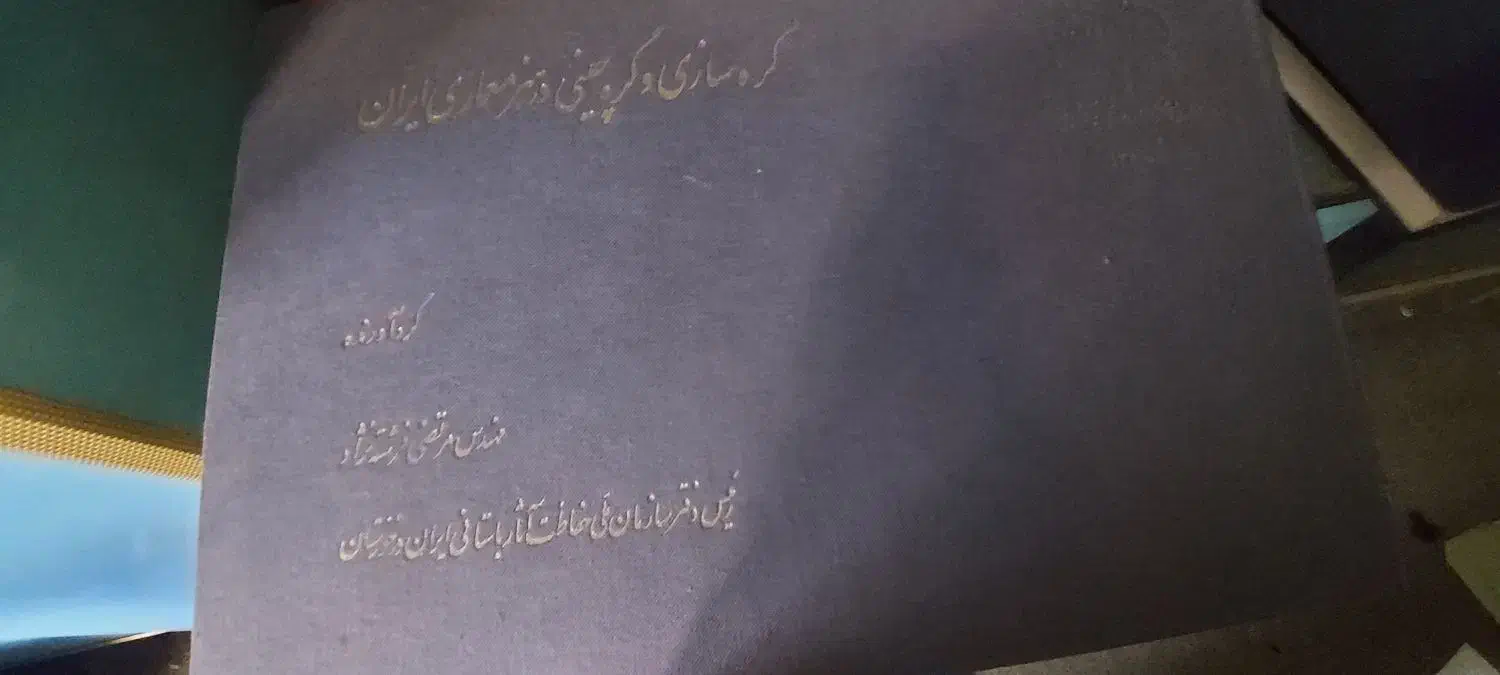 گره سازی و گره چینی در هنر معماری ایران
گردآورنده
مهندس مرتضی فرشته نژاد
رئیس دفتر سازمان ملی حفاظت آثار باستانی ایران در خوزستان